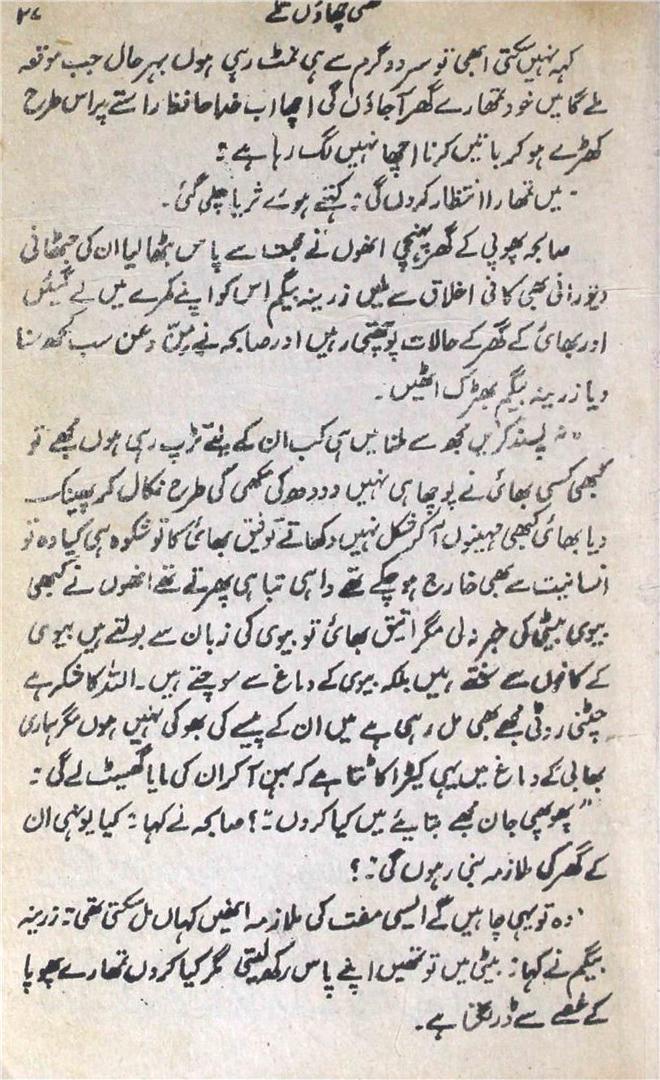 چھاؤں تلے ۲۷
کہہ نہیں سکتی ابھی تو سرد و گرم سے ہی نمٹ رہی ہوں بہرحال جب موقعہ
ملے گا میں خود تمھارے گھر آجاؤں گی اچھا اب خدا حافظ راستے پر اس طرح
کھڑے ہو کر باتیں کرنا اچھا نہیں لگ رہا ہے"
"میں تمھارا انتظار کروں گی" کہتے ہوئے ثریا چلی گئی۔
صابحہ پھوپی کے گھر پہنچی انھوں نے محبت سے پاس بٹھا لیا ان کی جٹھانی
دیورانی بھی کافی اخلاق سے ملیں زرینہ بیگم اس کو اپنے کمرے میں لے گئیں
اور بھائی کے گھر کے حالات پوچھتی رہیں اور صابحہ نے من و عن سب کچھ سنا
دیا زرینہ بیگم بھڑک اٹھیں۔
"نہ پسند کریں مجھ سے ملنا میں ہی کب ان کے لئے تڑپ رہی ہوں مجھے تو
کبھی کسی بھائی نے پوچھا ہی نہیں دودھ کی مکھی کی طرح نکال کر پھینک
دیا بھائی کبھی مہینوں آکر شکل نہیں دکھاتے توفیق بھائی کا تو شکوہ ہی کیا وہ تو
انسانیت سے بھی خارج ہو چکے تھے واہی تباہی پھرتے تھے انھوں نے کبھی
بیوی بیٹی کی خبر نہ لی مگر انیق بھائی تو بیوی کی زبان سے بولتے ہیں بیوی
کے کانوں سے سنتے ہیں بلکہ بیوی کے دماغ سے سوچتے ہیں۔ اللہ کا شکر ہے
چٹنی روٹی مجھے بھی مل رہی ہے میں ان کے پیسے کی بھوکی نہیں ہوں مگر ہماری
بھابی کے دماغ میں یہی کیڑا کاٹتا ہے کہ بہن آکر ان کی مایا گھسیٹ لے گی"
"پھوپھی جان مجھے بتایئے میں کیا کروں"؟ صابحہ نے کہا" کیا یونہی ان
کے گھر کی ملازمہ بنی رہوں گی"؟
"وہ تو یہی چاہیں گے ایسی مفت کی ملازمہ انھیں کہاں مل سکتی تھی" زرینہ
بیگم نے کہا" بیٹی میں تو تمھیں اپنے پاس رکھ لیتی مگر کیا کروں تمھارے پھوپا
کے غصے سے ڈر لگتا ہے۔